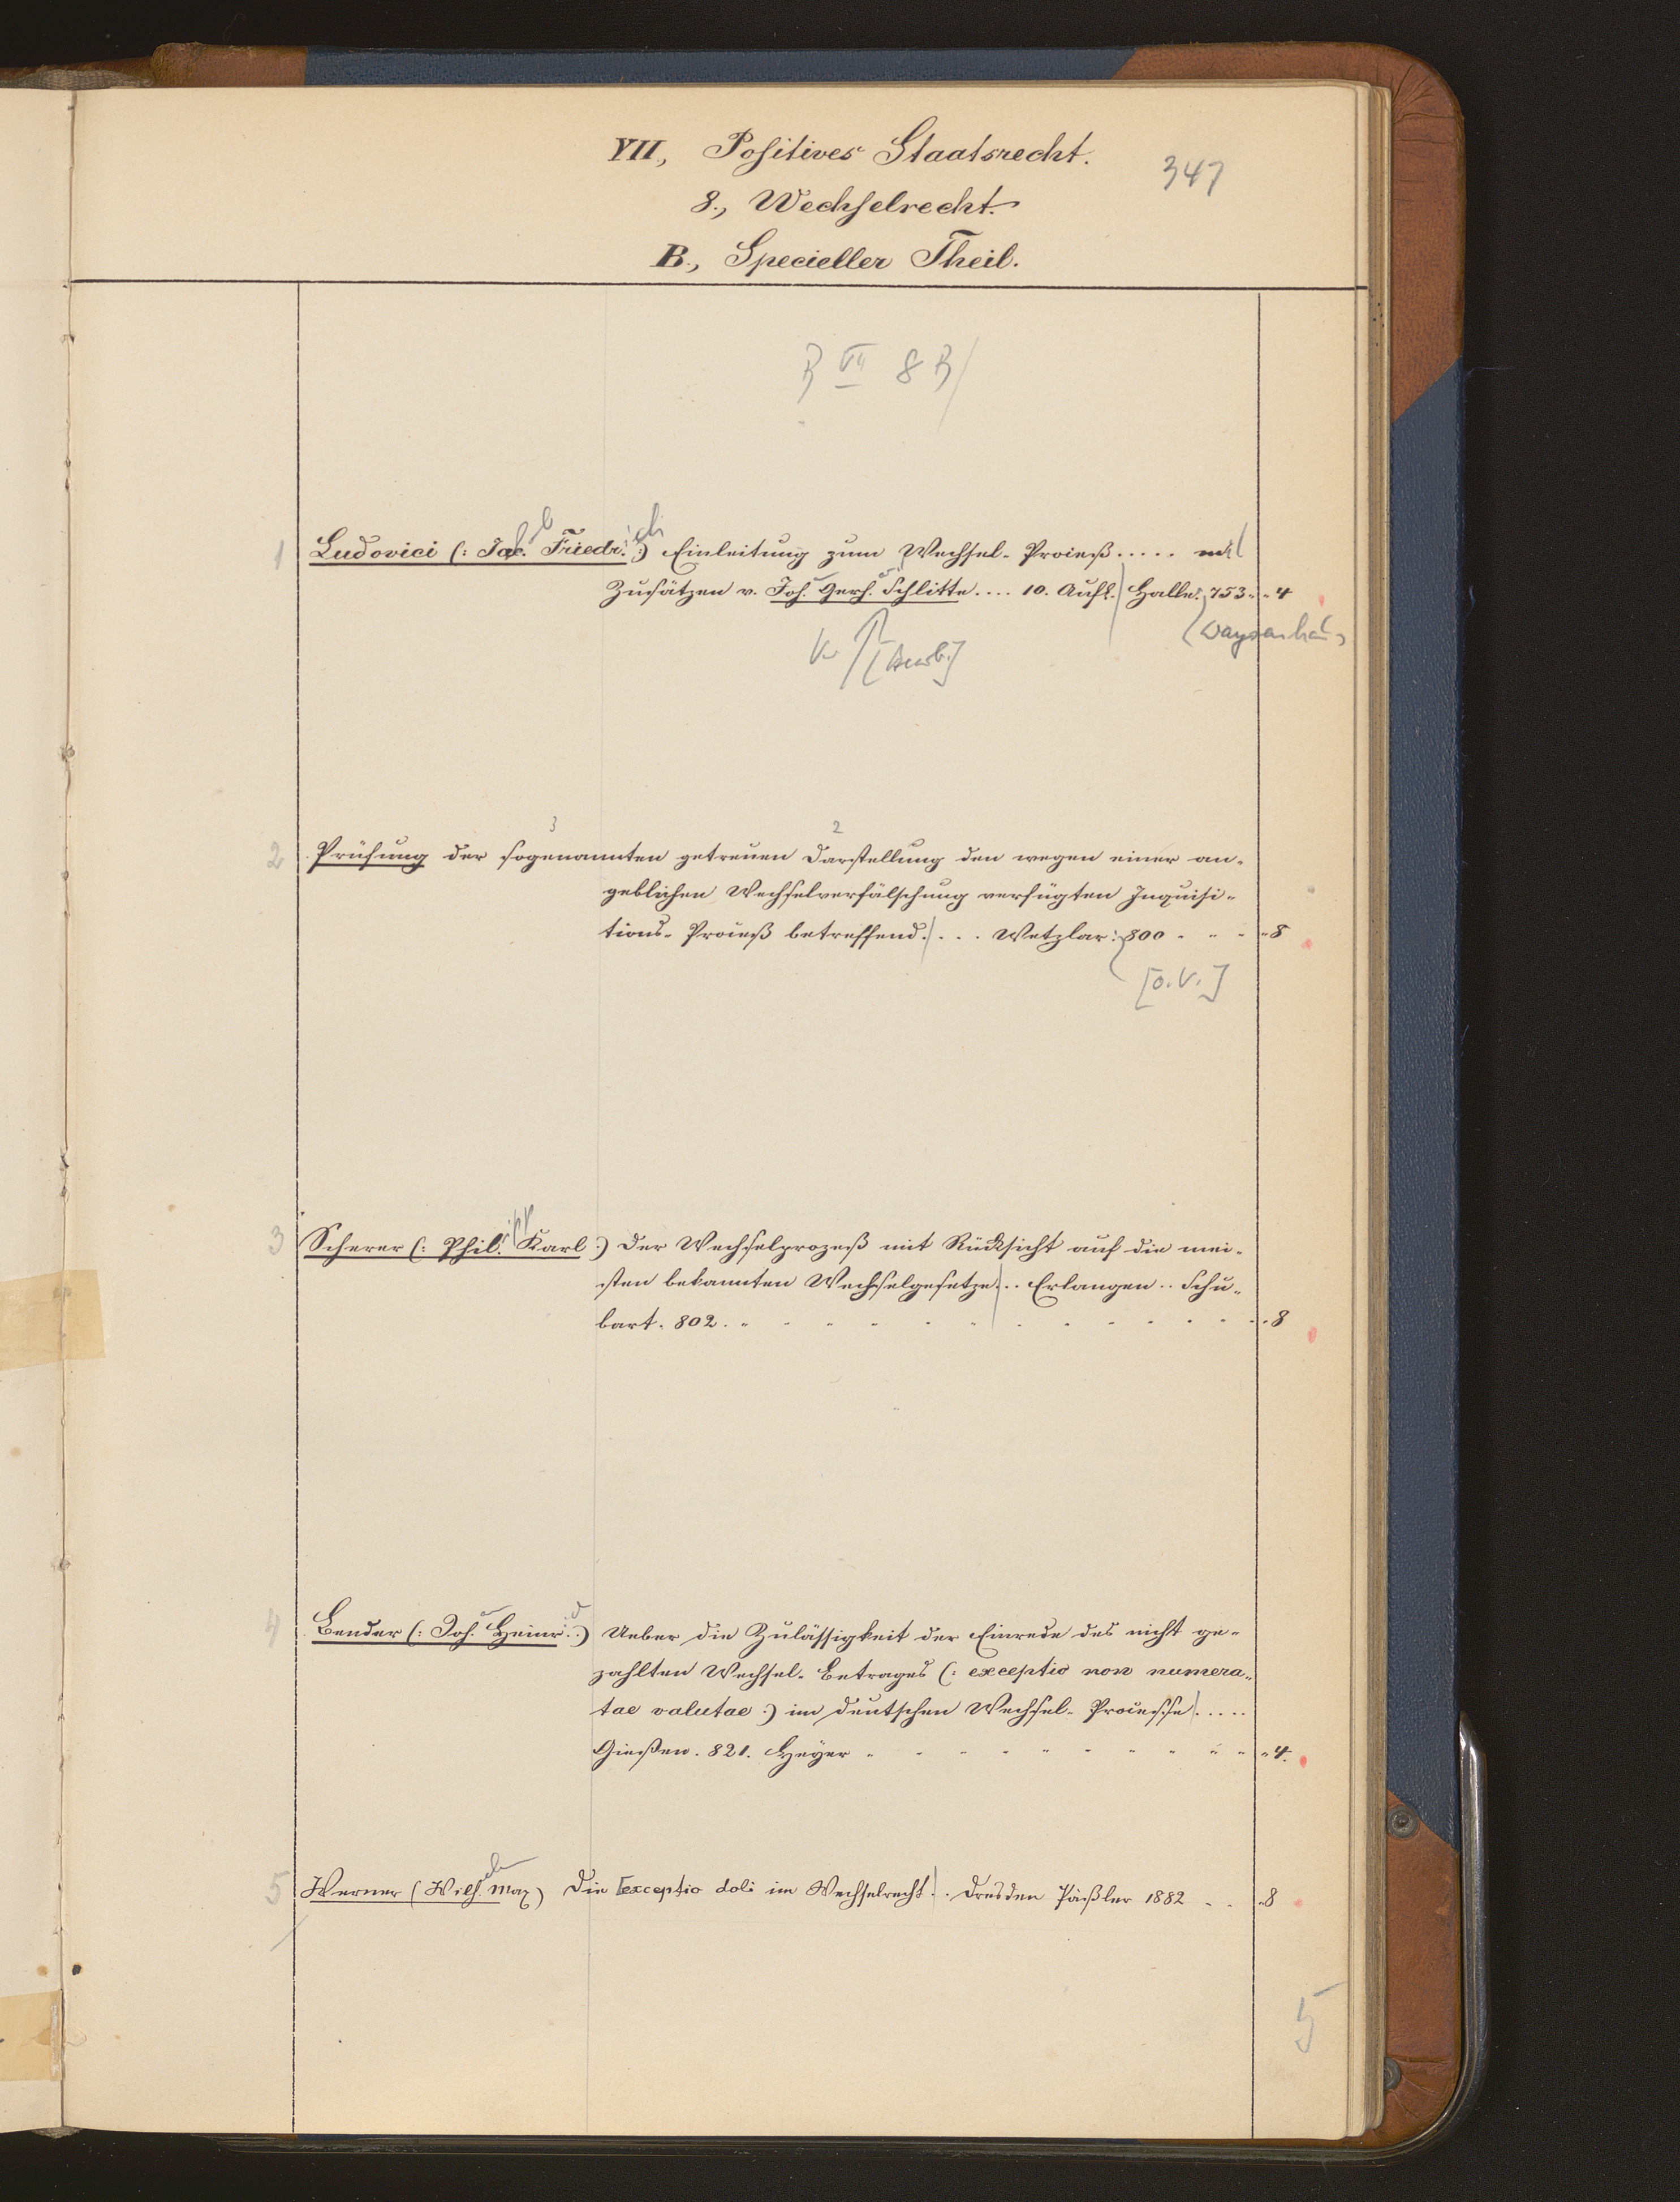 VII, Positives Staatsrecht.
347
8., Wechselrecht.
B., Specieller Theil.
B VII 8 B/
1 Ludovici (: Jac. Friedr. :) Einleitung zum Wechsel-Proceß ..... mit
Zusätzen v. Joh. Gerh. Schlitte .... 10. Aufl. Halle. 753 " " 4
(Waysenhaus)
2 Prüfung der sogenannten getreuen Darstellung den wegen einer an-
geblichen Wechselverfälschung verfügten Inquisi-
tions-Proceß betreffend. ... Wetzlar. 800 " " " " 8
[o. V.]
3 Scherer (: Phil. Karl :) Der Wechselprozeß mit Rücksicht auf die mei-
sten bekannten Wechselgesetze ... Erlangen .. Schu-
bart. 802. " 8
4 Bender (: Joh. Heinr. :) Ueber die Zulässigkeit der Einrede des nicht ge-
zahlten Wechsel-Betrages (: exceptio non numera-
tae valutae :) im deutschen Wechsel-Processe .....
Gießen. 821. Heyer " 4.
5 Werner (Wilh. Max) Die Exceptio doli im Wechselrecht .. Dresden Päßler 1882 .. " 8
5